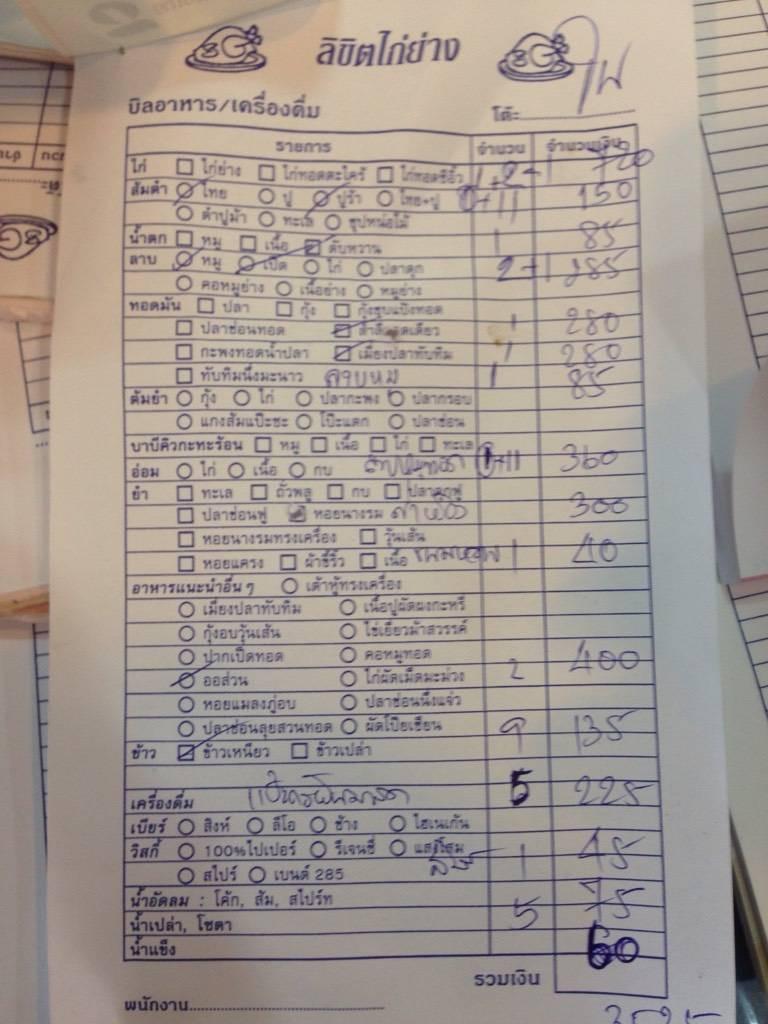 ลิขิตไก่ย่าง
บิลอาหาร/เครื่องดื่ม โต๊ะ
รายการ จำนวน จำนวนเงิน
ไก่ ไก่ย่าง ไก่ทอดตะไคร้ ไก่ทอดซีอิ๊ว 1+2+1 720
ส้มตำ ไทย ปู ปูร้า ไทย+ปู 150
ตำปูม้า ทะเล ซุปหน่อไม้
น้ำตก หมู เนื้อ ตับหวาน 1 85
ลาบ หมู เป็ด ไก่ ปลาดุก 2+1 285
คอหมูย่าง เนื้อย่าง หมูย่าง
ทอดมัน ปลา กุ้ง กุ้งชุบแป้งทอด
ปลาช่อนทอด สำลีแดดเดียว 1 280
กะพงทอดน้ำปลา เมี่ยงปลาทับทิม 1 280
ทับทิมนึ่งมะนาว ลาบหมู 1 85
ต้มยำ กุ้ง ไก่ ปลากะพง ปลากรอบ
แกงส้มแป๊ะซะ โป๊ะแตก ปลาช่อน
บาบีคิวกะทะร้อน หมู เนื้อ ไก่ ทะเล
อ่อม ไก่ เนื้อ กบ 360
ยำ ทะเล ถั่วพลู กบ ปลาดุกฟู
ปลาช่อนฟู หอยนางรม 300
หอยนางรมทรงเครื่อง วุ้นเส้น
หอยแครง ผ้าขี้ริ้ว เนื้อ 1 40
อาหารแนะนำอื่นๆ เต้าหู้ทรงเครื่อง
เมี่ยงปลาทับทิม เนื้อปูผัดผงกะหรี่
กุ้งอบวุ้นเส้น ไข่เยี่ยวม้าสวรรค์
ปากเป็ดทอด คอหมูทอด
ออส่วน ไก่ผัดเม็ดมะม่วง 2 400
หอยแมลงภู่อบ ปลาช่อนนึ่งแจ่ว
ปลาช่อนลุยสวนทอด ผัดโป๊ยเซียน
ข้าว ข้าวเหนียว ข้าวเปล่า 9 135
เครื่องดื่ม 5 225
เบียร์ สิงห์ ลีโอ ช้าง ไฮเนเก้น
วิสกี้ 100%ไปเปอร์ รีเจนซี่ แสงโสม 1 45
สไปร์ เบนด์ 285
น้ำอัดลม : โค้ก, ส้ม, สไปร์ท 75
น้ำเปล่า, โซดา 5
น้ำแข็ง 60
รวมเงิน
พนักงาน